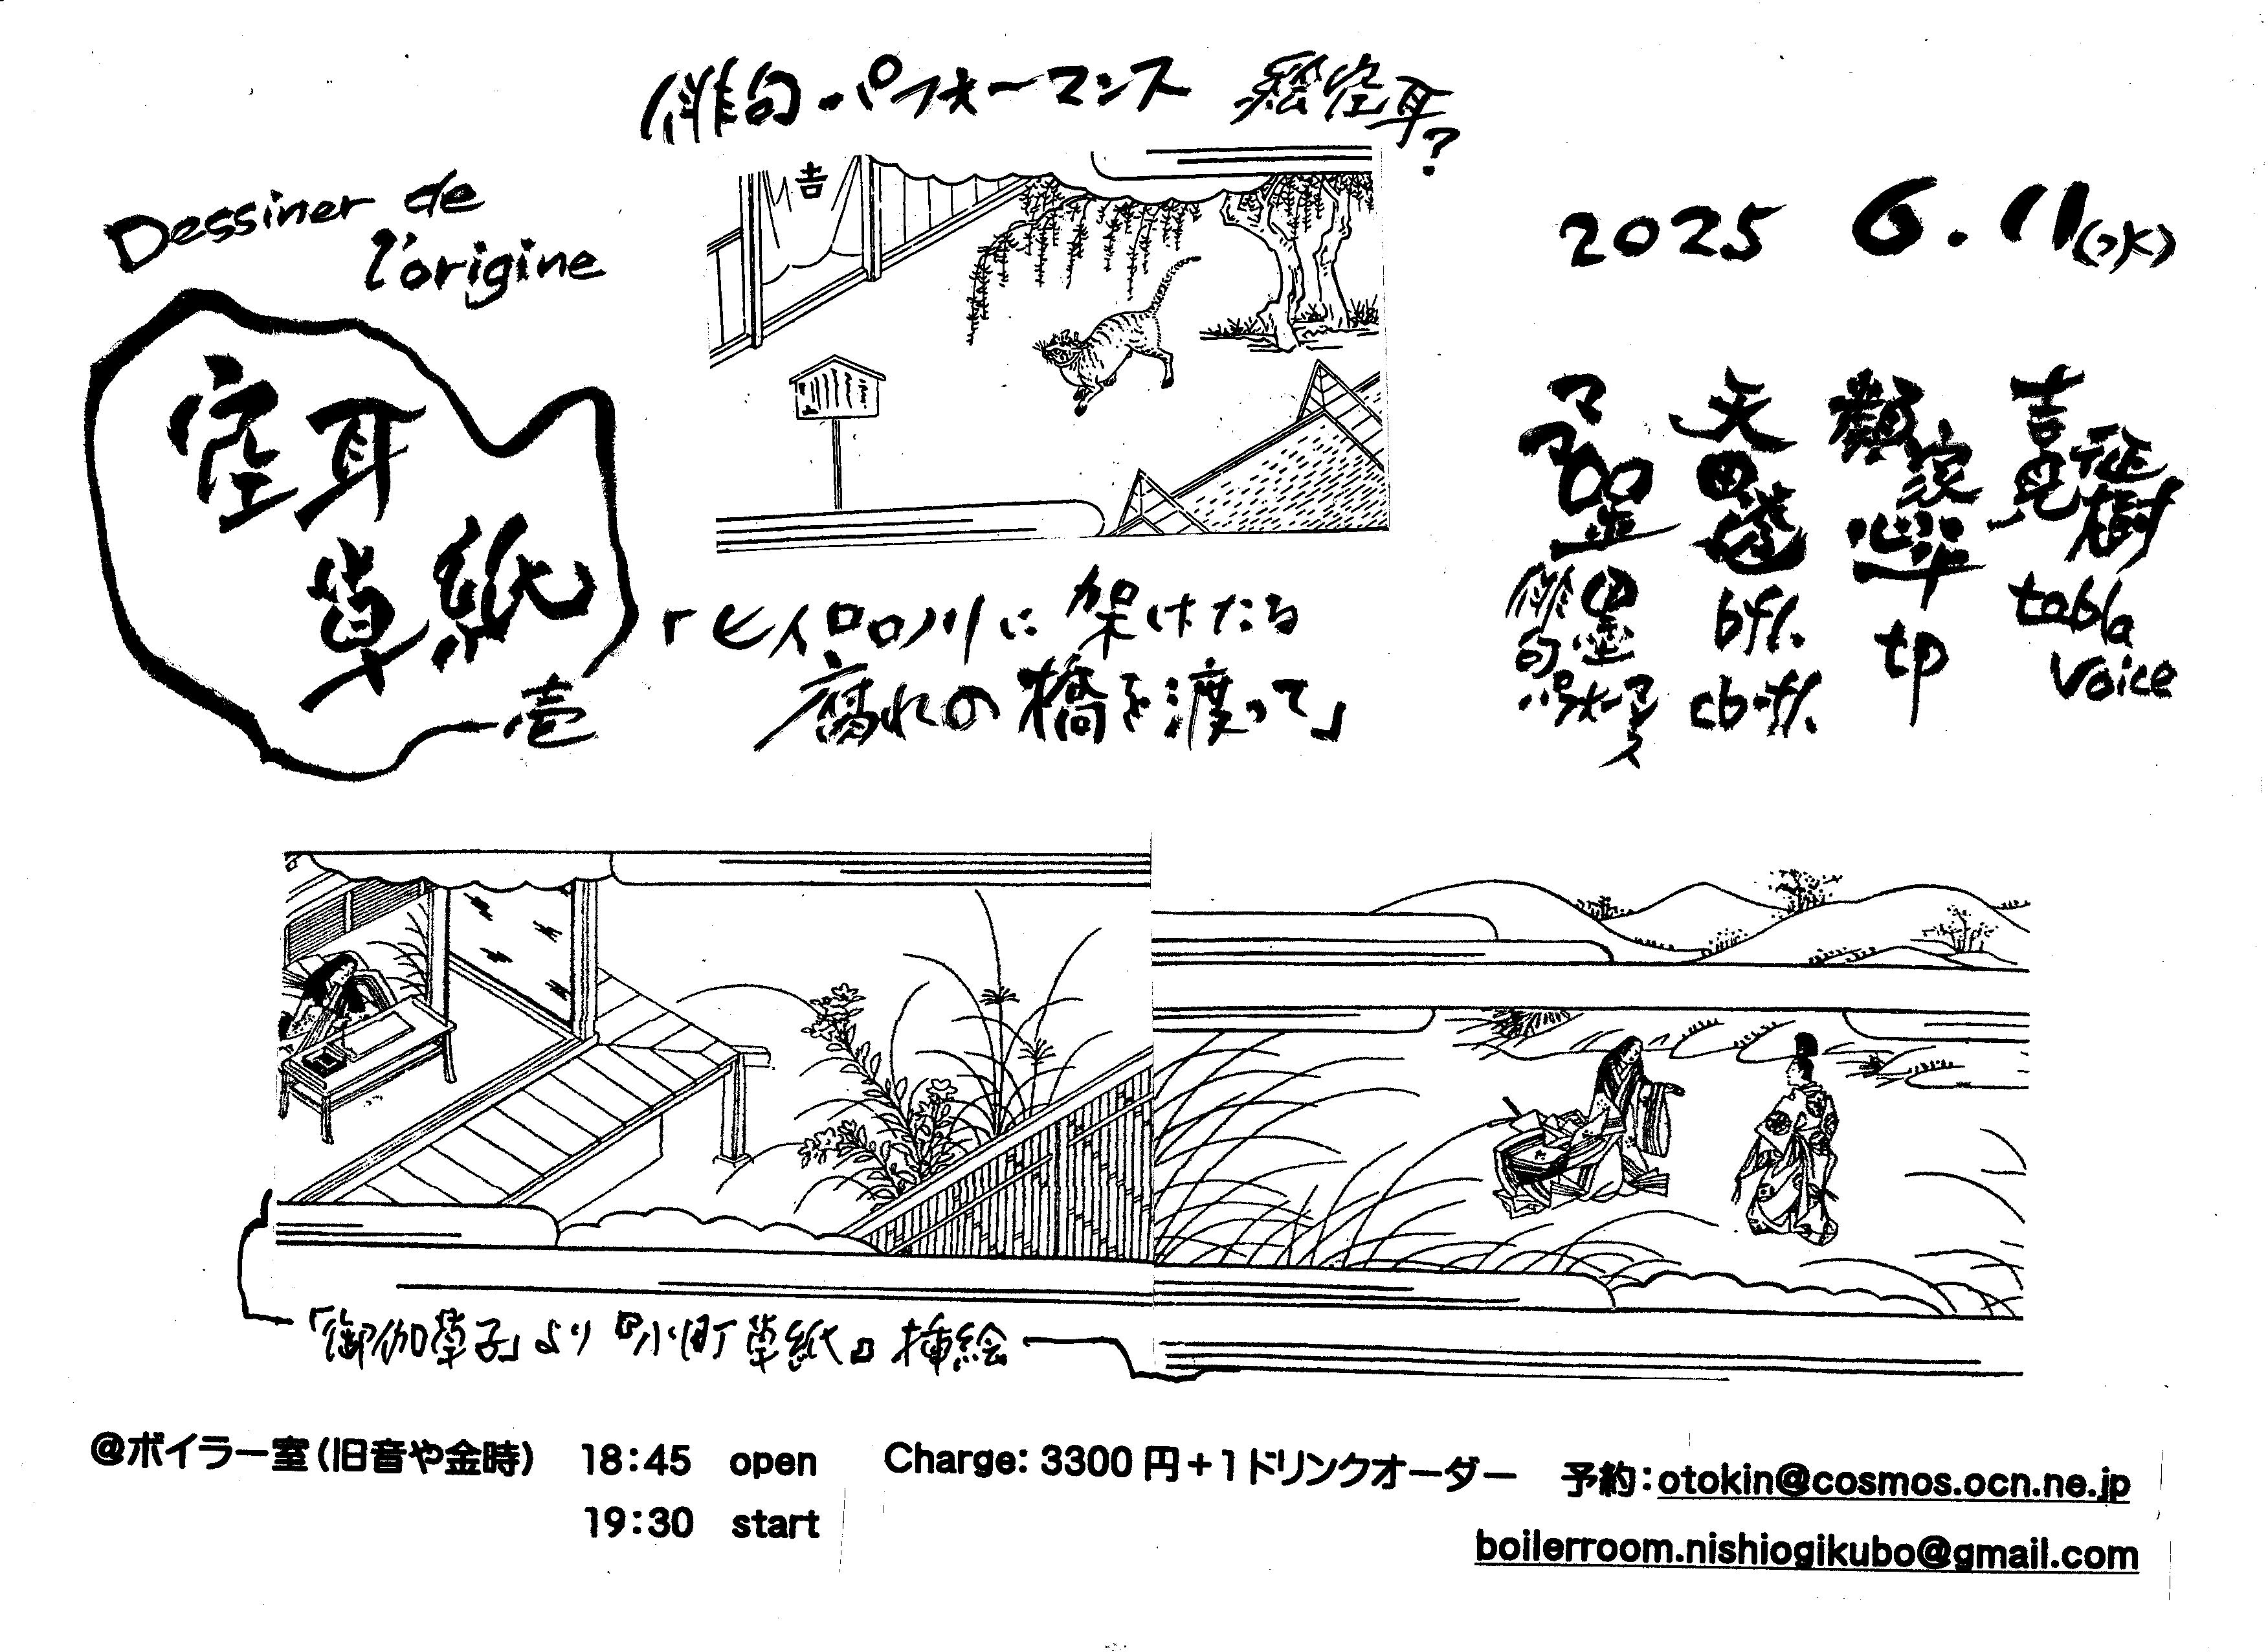 俳句・パフォーマンス 絵空耳?
Dessiner de
l'origine
空耳
草紙
壱
吉
2025 6.11(水)
「ヒイロロ川に架けたる
腐れの橋を渡って」
吉見征樹
tabla
voice
類家心平
tp
bfl.
cb-fl.
俳句
パフォーマンス
「御伽草子」より『小町草紙』挿絵
@ボイラー室(旧音や金時) 18:45 open
19:30 start
Charge: 3300円+1ドリンクオーダー
予約:otokin@cosmos.ocn.ne.jp
boilerroom.nishiogikubo@gmail.com